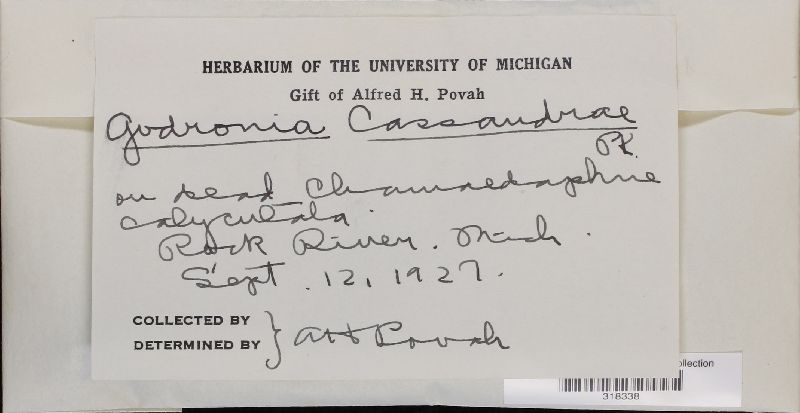 HERBARIUM OF THE UNIVERSITY OF MICHIGAN
Gift of Alfred H. Povah
Godronia Cassandrae
Pk.
on dead Chamaedaphne
calyculata.
Rock River. Mich.
Sept. 12, 1927.
COLLECTED BY
DETERMINED BY } AH Povah
ollection
318338